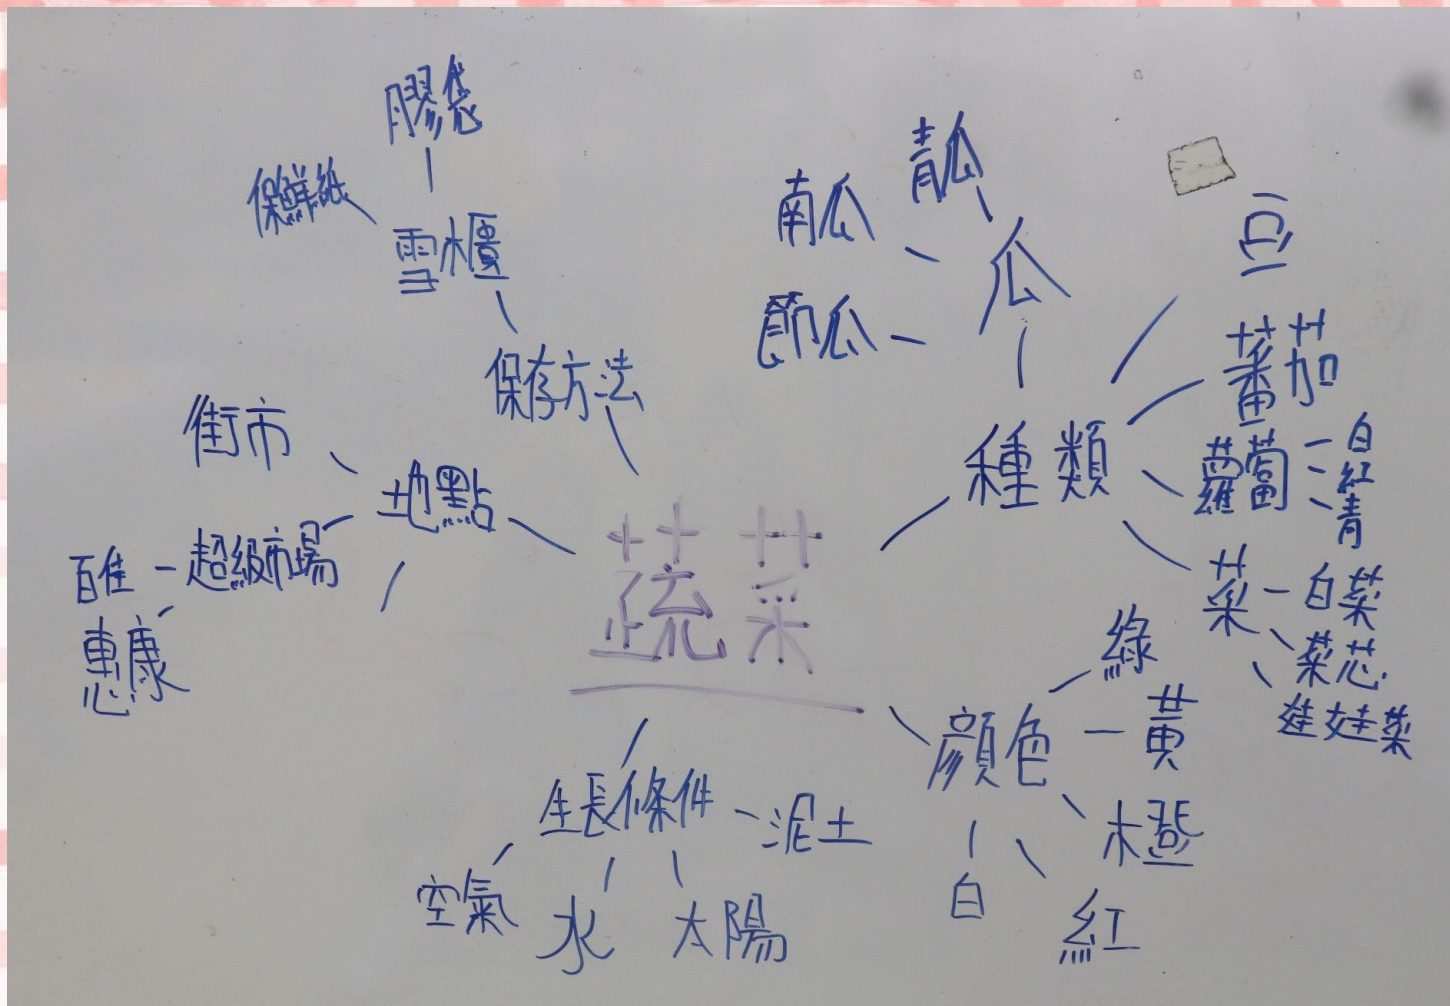 膠袋
保鮮紙
雪櫃
保存方法
街市
地點
超級市場
百佳
惠康
蔬菜
青瓜
南瓜
瓜
節瓜
種類
豆
蕃茄
蘿蔔
白
紅
青
菜
白菜
菜芯
娃娃菜
顏色
綠
黃
橙
紅
白
生長條件
泥土
空氣
水
太陽